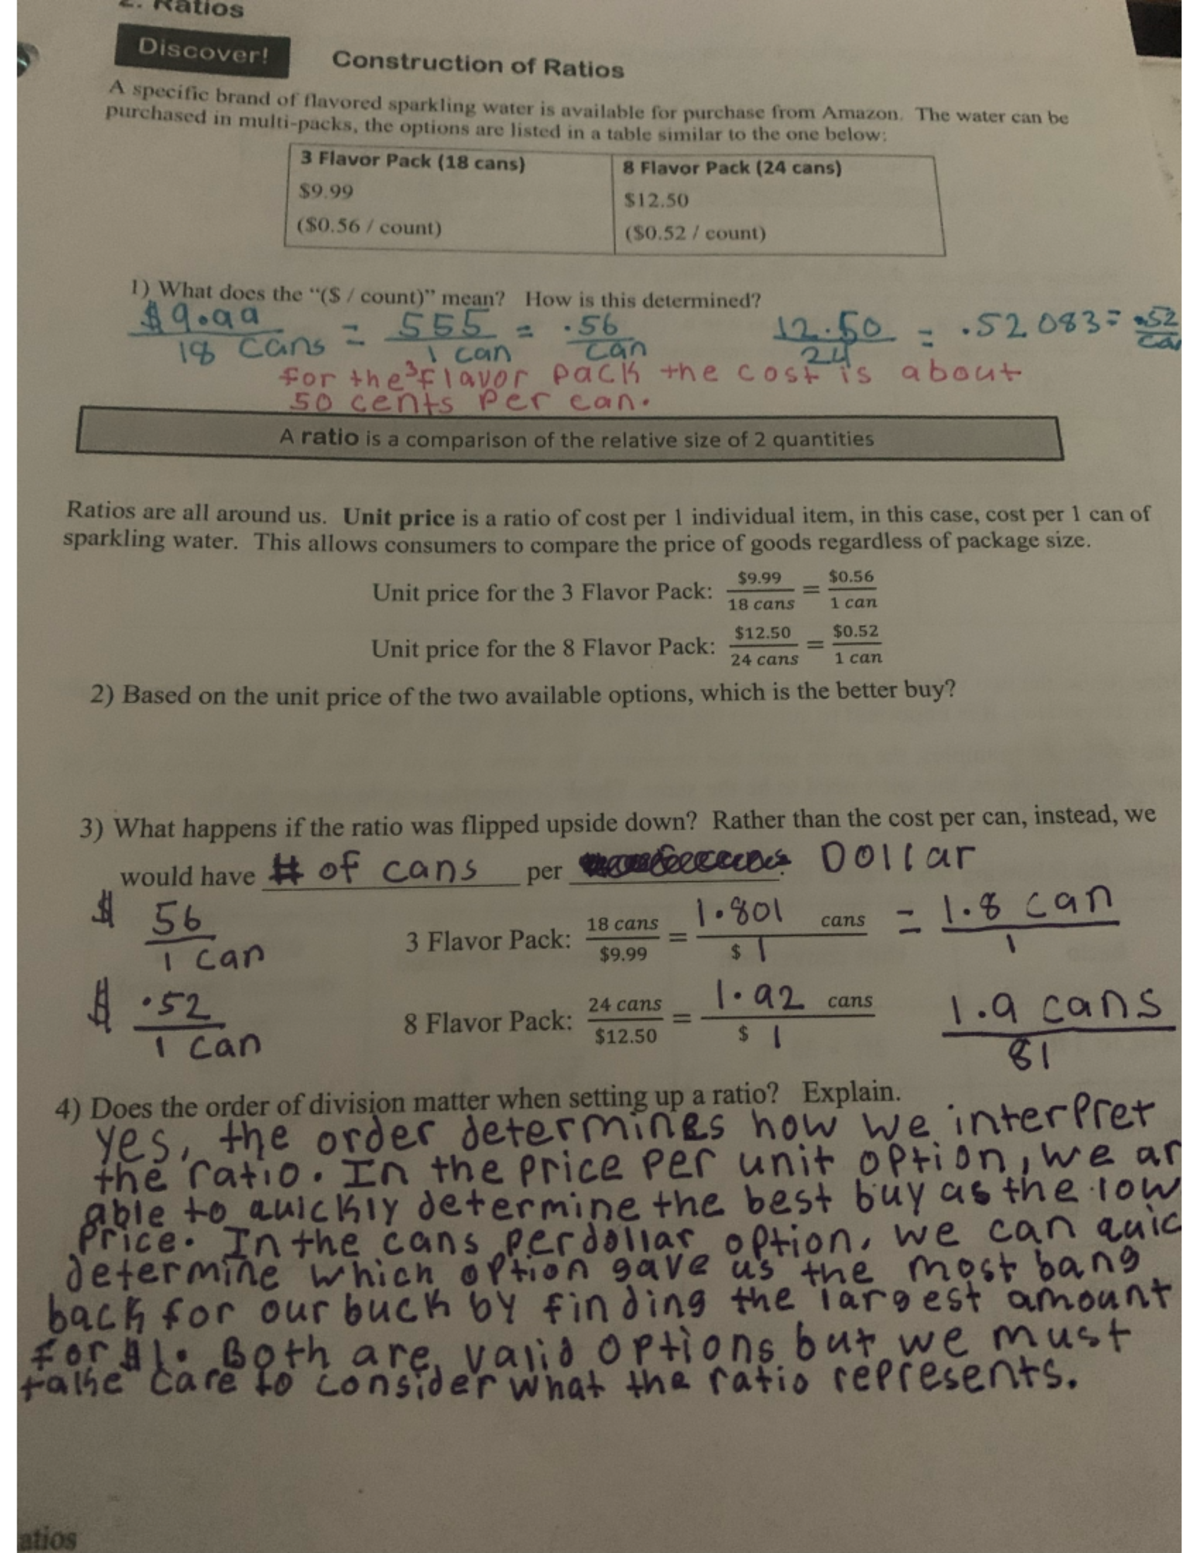 2. Ratios
Discover!
Construction of Ratios
A specific brand of flavored sparkling water is available for purchase from Amazon. The water can be
purchased in multi-packs, the options are listed in a table similar to the one below:
3 Flavor Pack (18 cans)
$9.99
($0.56 / count)
8 Flavor Pack (24 cans)
$12.50
($0.52 / count)
1) What does the "($ / count)" mean? How is this determined?
$9.99 / 18 cans = 555 / 1 can = .56 / can
12.50 / 24 = .52083 = .52 / can
for the 3 flavor pack the cost is about
50 cents per can.
A ratio is a comparison of the relative size of 2 quantities
Ratios are all around us. Unit price is a ratio of cost per 1 individual item, in this case, cost per 1 can of
sparkling water. This allows consumers to compare the price of goods regardless of package size.
Unit price for the 3 Flavor Pack: $9.99 / 18 cans = $0.56 / 1 can
Unit price for the 8 Flavor Pack: $12.50 / 24 cans = $0.52 / 1 can
2) Based on the unit price of the two available options, which is the better buy?
3) What happens if the ratio was flipped upside down? Rather than the cost per can, instead, we
would have # of cans per Dollar
$ 56 / 1 can
3 Flavor Pack: 18 cans / $9.99 = 1.801 cans / $ 1 = 1.8 can / 1
$ .52 / 1 can
8 Flavor Pack: 24 cans / $12.50 = 1.92 cans / $ 1
1.9 cans / 81
4) Does the order of division matter when setting up a ratio? Explain.
yes, the order determines how we interpret
the ratio. In the price per unit option, we ar
able to quickly determine the best buy as the low
price. In the cans per dollar option, we can quic
determine which option gave us the most bang
back for our buck by finding the largest amount
for $1. Both are valid options but we must
take care to consider what the ratio represents.
atios